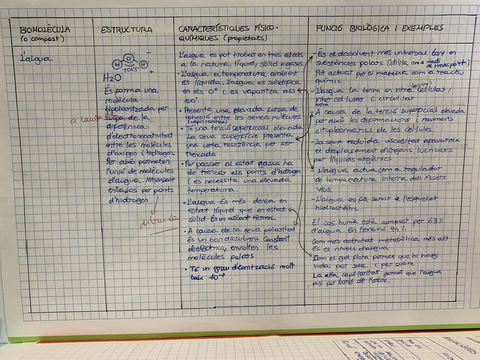 BIOMOLÈCULA
(o compost)
ESTRUCTURA
CARACTERÍSTIQUES FÍSICO-
QUÍMIQUES (propietats)
FUNCIÓ BIOLÒGICA I EXEMPLES
L'aigua
H2O
És forma una
molècula
bipolaritzada per
a causa de la
diferència
d'electronegativitat
entre les molècules
d'oxigen i hidrogen.
Per això permeten
l'unió de molècules
d'aigua mitjançant
enllaços per ponts
d'hidrogen
dibuixa
L'aigua es pot trobar en tres estats
a la natura, líquid, sòlid o gasós.
L'aigua a temperatura ambient
és líquida. L'aigua es solidifica
en els 0° i es vaporitza als
100°
Presenta una elevada força de
cohesió entre les seves molècules
Té una tensió superficial elevada
La seva superfície presenta
una certa resistència per ser
trencada
Per passar al estat gasós ha
de trencar els ponts d'hidrogen
i es necessita una elevada
temperatura.
L'aigua és més densa en
estat líquid que en estat
sòlid. És un aïllant tèrmic.
A causa de la seva polaritat
és un bon dissolvent. Constant
dielèctrica, envolten les
molècules polars
Té un grau d'ionització molt
baix 10⁻⁷
És el dissolvent més universal
substàncies polars.
Pot actuar per si mateixa com a reactiu
químic.
L'aigua la tenim en intracel·lular,
intercel·lular i circulant
A causa de la tensió superficial elevada
per això és deformacions i moviments
citoplasmàtics de les cèl·lules.
La seva reduïda viscositat afavoreix
el desplaçament d'òrgans lubricats
per líquids orgànics
L'aigua actua com a regulador
de temperatura interna dels éssers
vius.
L'aigua es fa servir a l'esquelet
hidrostàtic
El cos humà està compost per 63%
d'aigua. En fetus 94%
Com més activitat metabòlica més alt
és el nivell d'aigua
Com el gel flota permet que hi hagi
vida per sota i per sobre.
La alta capil·laritat permet que l'aigua
puji per